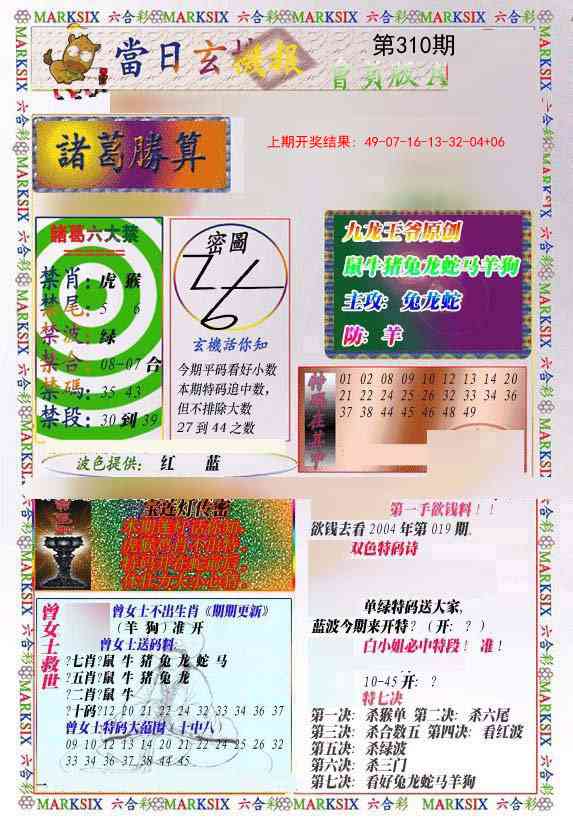 MARKSIX 六合彩 MARKSIX 六合彩 MARKSIX 六合彩 MARKSIX 六合彩
當日玄機報
第310期
會員版A
諸葛勝算
上期开奖结果：49-07-16-13-32-04+06
諸葛六大禁
禁肖：虎 猴
禁尾：5 6
禁波：绿
禁合：08-07合
禁碼：35 43
禁段：30到39
密圖
玄機活你知
今期平码看好小数
本期特码追中数，
但不排除大数
27到44之数
九龙王爷原创
鼠牛猪兔龙蛇马羊狗
主攻：兔龙蛇
防：羊
01 02 08 09 10 12 13 14 20
21 22 24 25 26 32 33 34 36
37 38 44 45 46 48 49
波色提供：红 蓝
宝莲灯传密
第一手欲钱料！！
欲钱去看2004年第019期.
双色特码诗
单绿特码送大家，
蓝波今期来开特？（开：？）
白小姐必中特段！准！
10-45开：？
特七决
第一决：杀猴单 第二决：杀六尾
第三决：杀合数五 第四决：看红波
第五决：杀绿波
第六决：杀三门
第七决：看好兔龙蛇马羊狗
曾女士救世
曾女士不出生肖《期期更新》
（羊 狗）准 开
曾女士送码料
?七肖?鼠 牛 猪 兔 龙 蛇 马
?五肖?鼠 牛 猪 兔 龙
?二肖?鼠 牛
?十码?12 20 21 22 24 32 33 34 36 37
曾女士特码大范围（十中八）
09 10 12 13 14 20 21 22 24 25 26 32
33 34 36 37 38 44 45
MARKSIX 六合彩 MARKSIX 六合彩 MARKSIX 六合彩 MARKSIX 六合彩